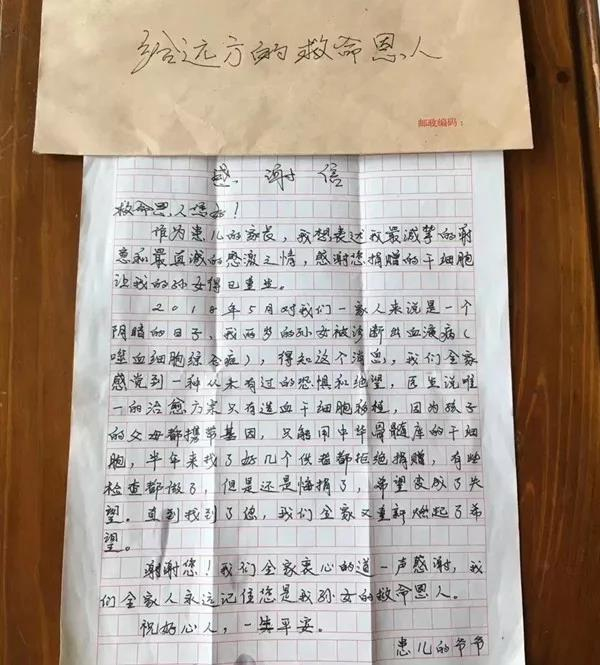 给远方的救命恩人
邮政编码：
感谢信
救命恩人您好！
作为患儿的家长，我想表达我最诚挚的谢
意和最真诚的感激之情，感谢您捐赠的干细胞
让我的孙女得已重生。
2018年5月对我们一家人来说是一个
阴暗的日子，我两岁的孙女被诊断出血液病(
噬血细胞综合症)，得知这个消息，我们全家
感觉到一种从未有过的恐惧和绝望，医生说唯
一的治愈方案只有造血干细胞移植，因为孩子
的父母都携带基因，只能用中华骨髓库的干细
胞，半年来找了好几个供者都拒绝捐赠，有些
检查都做了，但是还是悔捐了，希望变成了失
望。直到找到了您，我们全家又重新燃起了希
望。
谢谢您！我们全家衷心的道一声感谢，我
们全家人永远记住您是我孙女的救命恩人。
祝好心人，一生平安。
患儿的爷爷